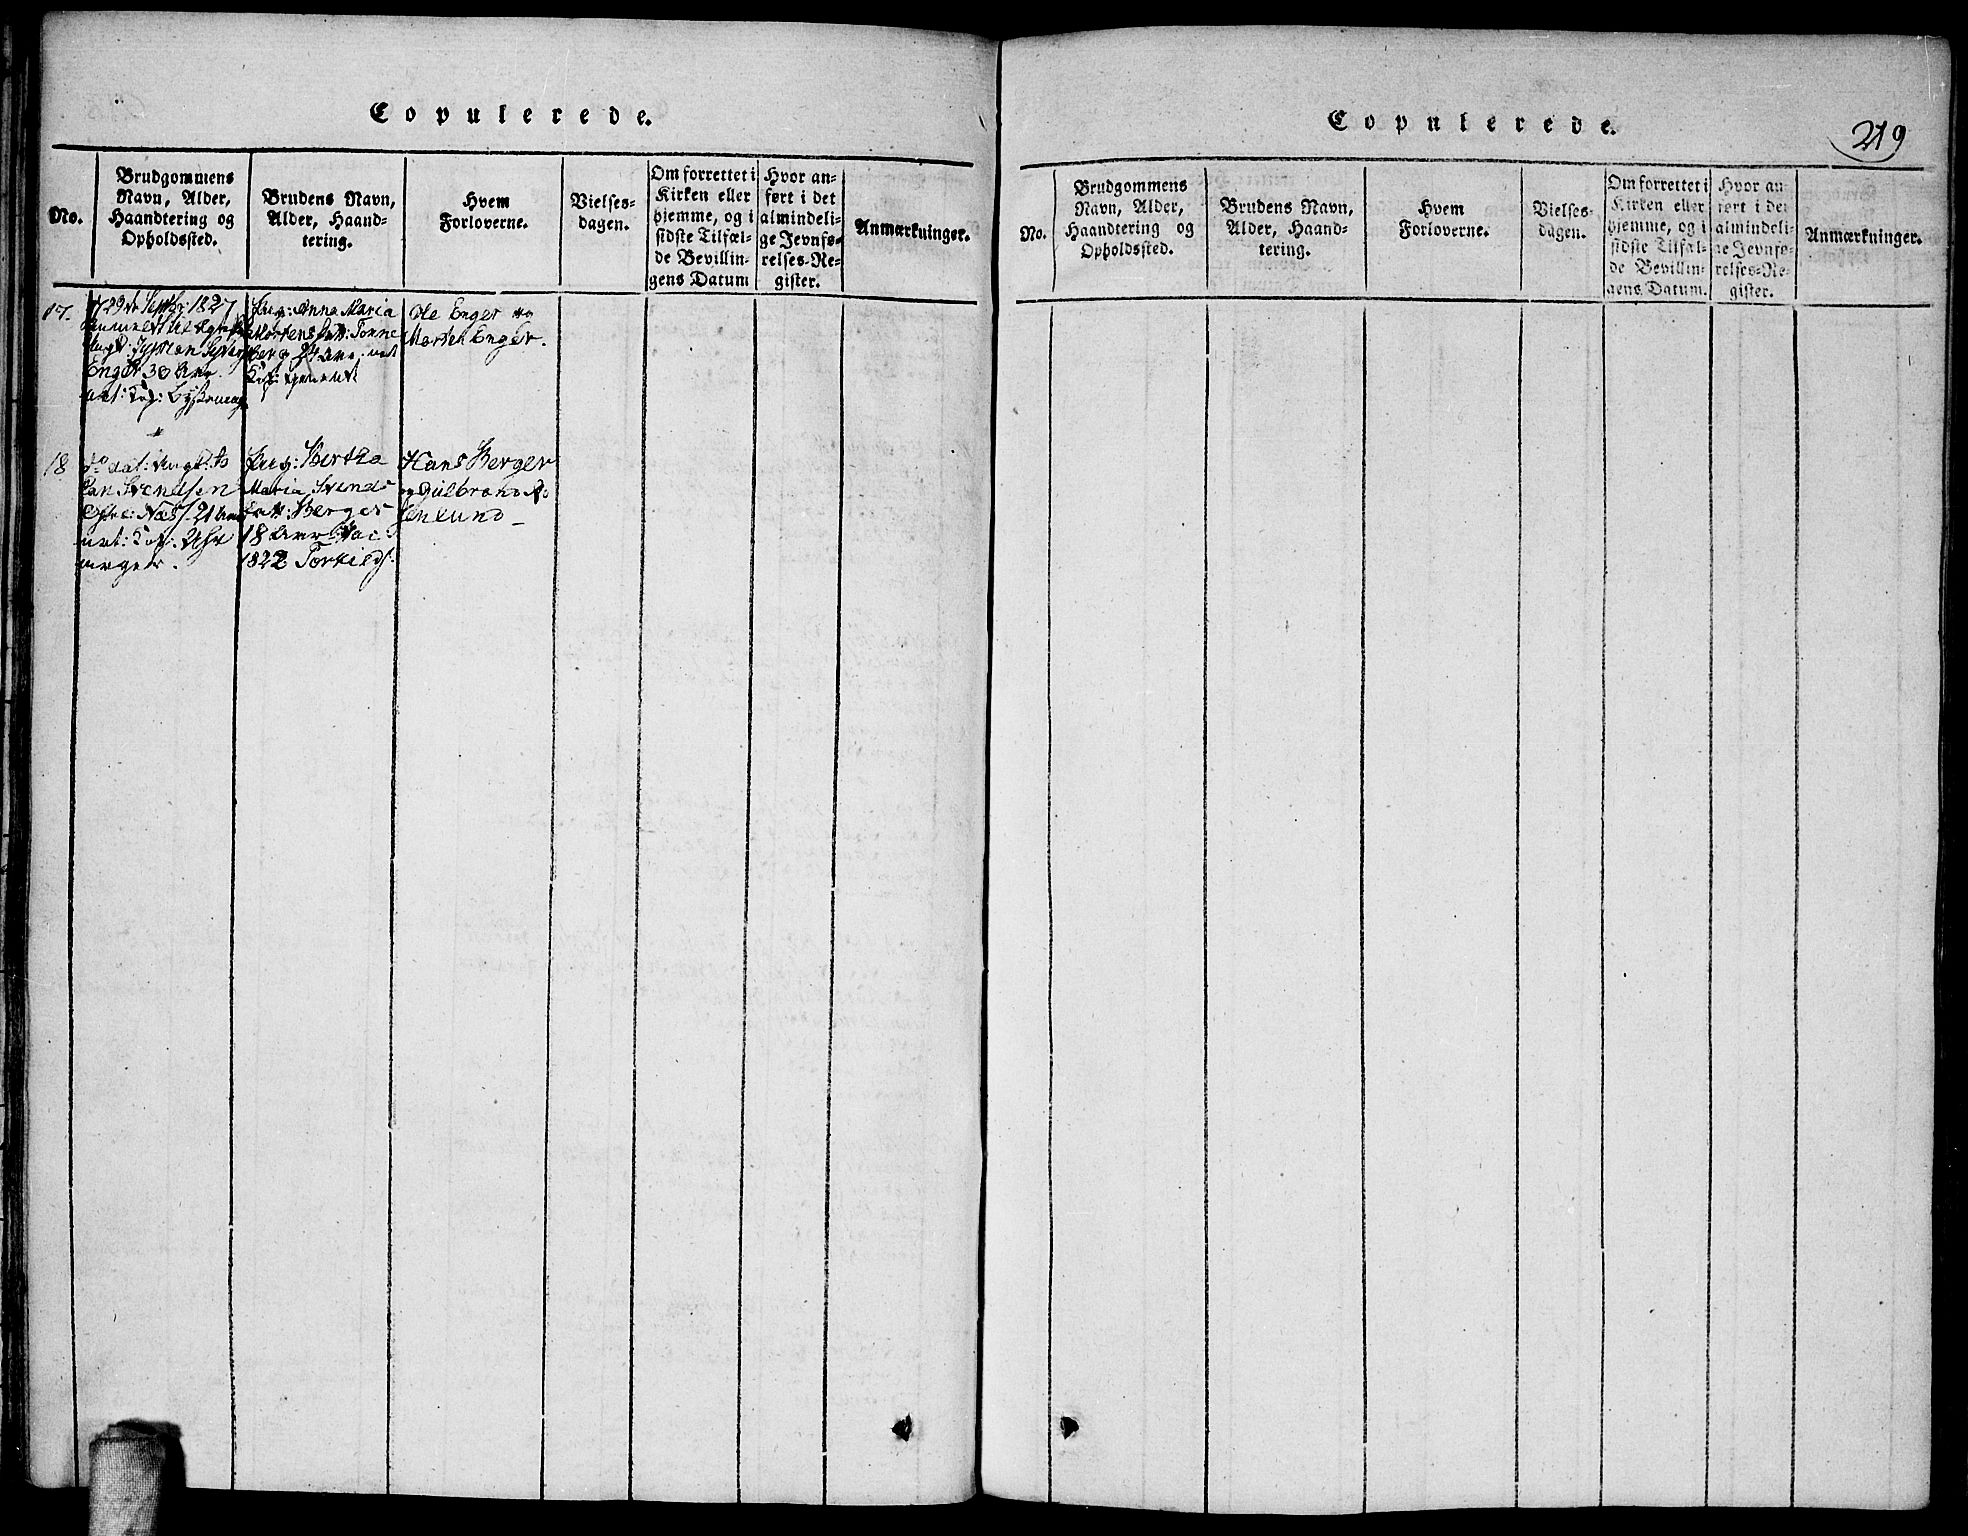 Copulerede.
No.
Brudgommens
Navn, Alder,
Haandtering og
Opholdssted.
Brudens Navn,
Alder, Haand-
tering.
Hvem
Forloverne.
Vielses-
dagen.
Om forrettet i
Kirken eller
hjemme, og i
sidste Tilfæl-
de Bevillin-
gens Datum
Hvor an-
ført i det
almindeli-
ge Jevnfø-
relses-Re-
gister.
Anmærkninger.
17.
29de Septbr: 1827
Enger 30 Aar
Anna Maria
Mortens
berg 24 Aar
Ole Enger og
Morten Enger.
18
Svendsen
21 Aar
Bertha
Maria Svends
datt: Berger
18 Aar
1822
Hans Berger
og Gulbrand
Copulerede.
219
No.
Brudgommens
Navn, Alder,
Haandtering og
Opholdssted.
Brudens Navn,
Alder, Haand-
tering.
Hvem
Forloverne.
Vielses-
dagen.
Om forrettet i
Kirken eller
hjemme, og i
sidste Tilfæl-
de Bevillin-
gens Datum.
Hvor an-
ført i det
almindeli-
ge Jevnfø-
relses-Re-
gister.
Anmærkninger.